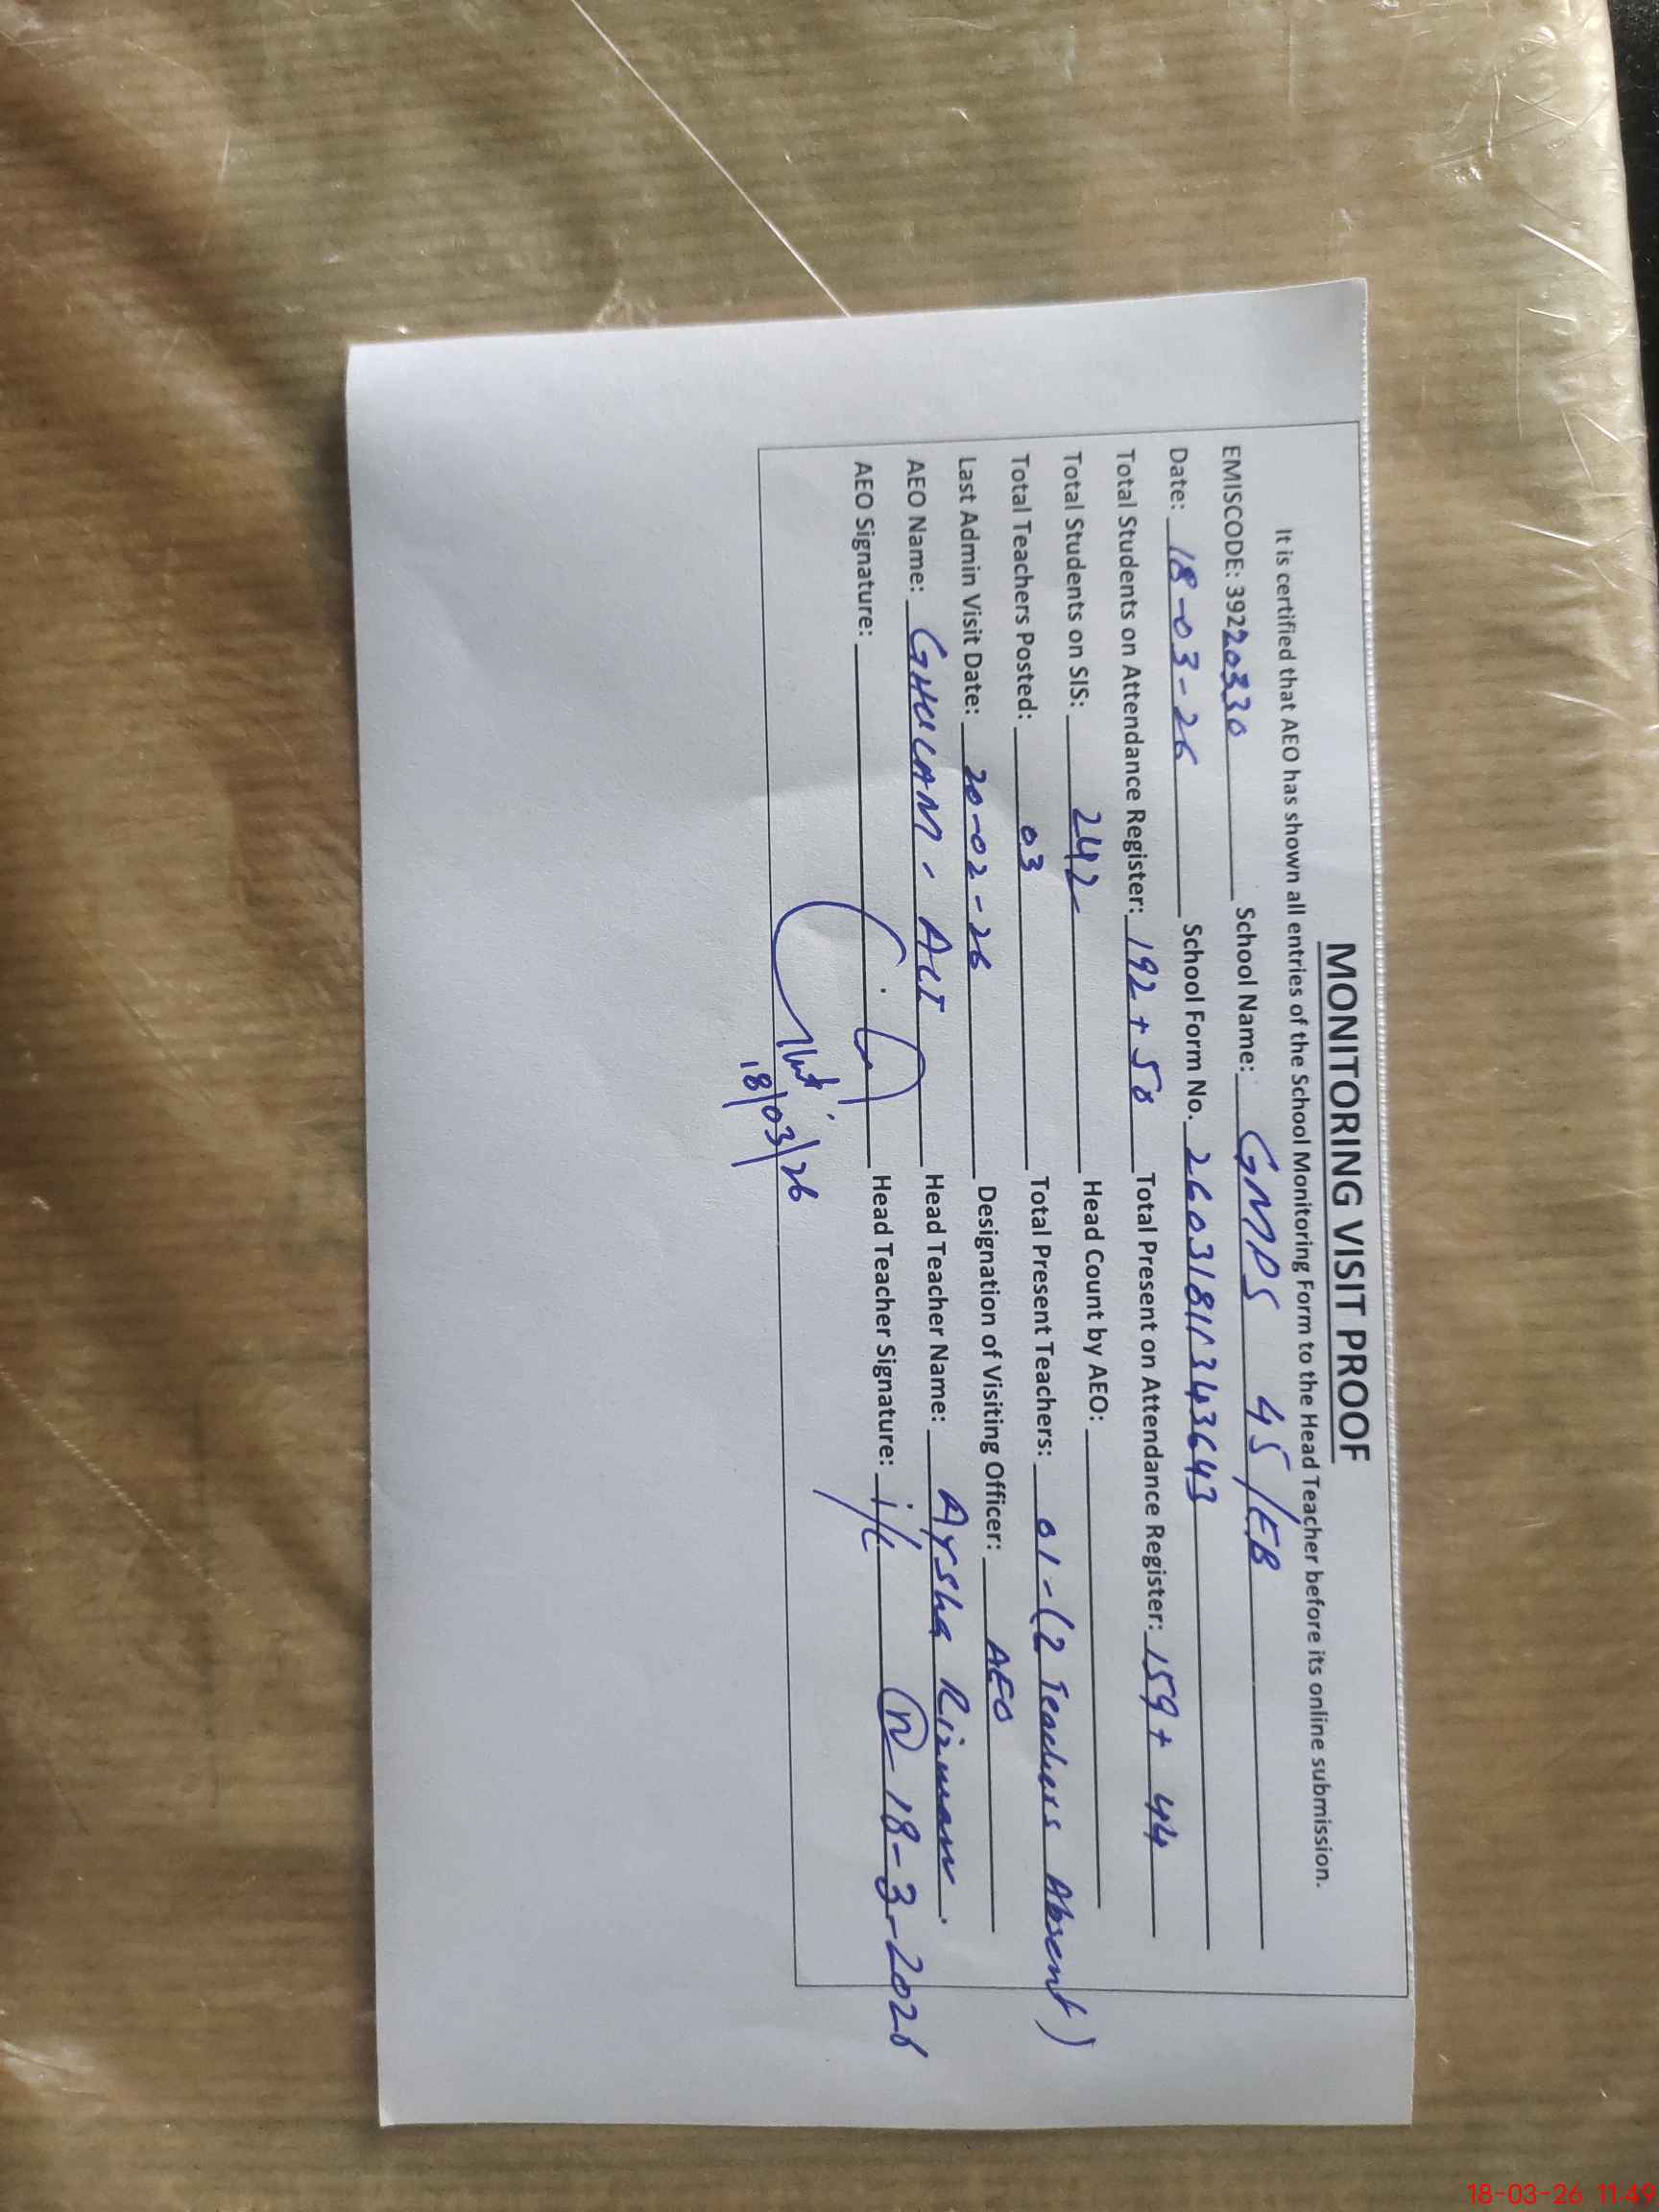 MONITORING VISIT PROOF
It is certified that AEO has shown all entries of the School Monitoring Form to the Head Teacher before its online submission.
EMISCODE: 39220330 School Name: GMPS 45/EB
Date: 18-03-26 School Form No. 2603181134 3643
Total Students on Attendance Register: 192 + 50 Total Present on Attendance Register: 159 + 44
Total Students on SIS: 242 Head Count by AEO:
Total Teachers Posted: 03 Total Present Teachers: 01-(2 Teachers Absent)
Last Admin Visit Date: 20-02-26 Designation of Visiting Officer: AEO
AEO Name: GHULAM ALI Head Teacher Name: Aysha Rizwan.
AEO Signature: Head Teacher Signature: i/c 18-3-2026
18/03/26
18-03-26 11:49